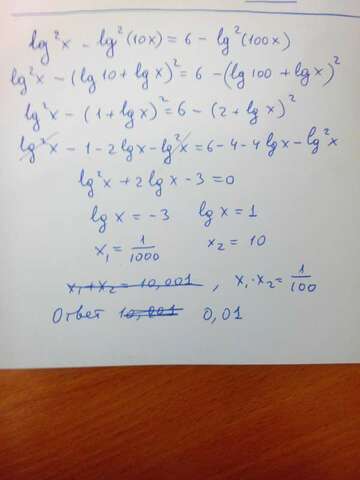 lg²x - lg²(10x) = 6 - lg²(100x)
lg²x - (lg10 + lgx)² = 6 - (lg100 + lgx)²
lg²x - (1 + lgx)² = 6 - (2 + lgx)²
lg²x - 1 - 2lgx - lg²x = 6 - 4 - 4lgx - lg²x
lg²x + 2lgx - 3 = 0
lgx = -3 lgx = 1
x₁ = 1/1000 x₂ = 10
x₁ + x₂ = 10,001 , x₁·x₂ = 1/100
Ответ 10,001 0,01